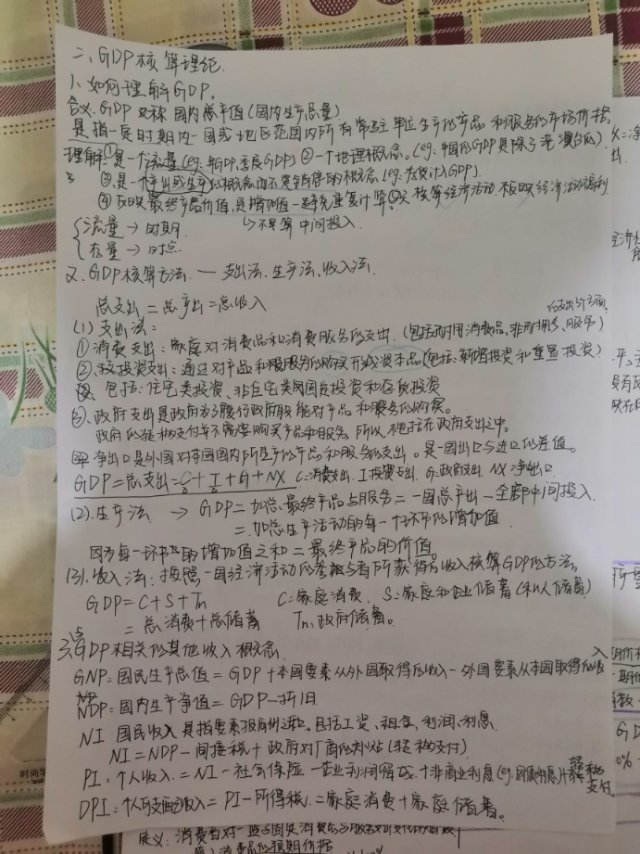 二、GDP核算理论
1、如何理解GDP.
含义:GDP又称国内总产值(国内生产总量)
是指一定时期内一国或地区范围内所有常驻单位生产的产品和服务的市场价格.
理解:①是一个流量(eg:年GDP,季度GDP) ②一个地理概念。(eg:中国的GDP是除了老 澳台)
③是一个产出或生产的概念而不是销售的概念
④反映最终产品价值,是增加值-避免重复计算 核算经济活动
流量→时期 ↳不算中间投入
存量→时点
2、GDP核算方法 — 支出法、生产法、收入法.
总支出=总产出=总收入
(1)支出法:
①消费支出:家庭对消费品和消费服务的支出.(包括耐用消费品、非耐用、服务)
②投资支出:通过对产品和服务的购买形成资本品(包括:新增投资和重置投资)
包括:住宅类投资、非住宅类固定投资和存货投资
③、政府支出是政府为了履行政府职能对产品和服务的购买。
政府的转移支付并不需要购买产品和服务,所以不包括在政府支出之中。
④净出口是外国对本国国内所生产的产品和服务的支出。是一国出口与进口的差值。
GDP=总支出=C+I+G+NX C:消费支出.I投资支出 G:政府支出 NX净出口
(2).生产法 → GDP=加总.最终产品与服务=一国总产出-全部中间投入.
=.加总生产活动的每一个环节的增加值
因为每一环节的增加值之和=最终产品的价值。
(3).收入法:按照一国经济活动的参与者所获得的收入核算GDP的方法.
GDP=C+S+Tn C:家庭消费. S:家庭和企业储蓄(私人储蓄)
=总消费+总储蓄 Tn:政府储蓄。
三、与GDP相关的其他收入概念.
GNP:国民生产总值=GDP+本国要素从外国取得的收入-外国要素从本国取得的收入
NDP:国内生产净值=GDP-折旧
NI 国民收入 是指要素报酬 包括工资、租金、利润、利息
NI=NDP-间接税+政府对厂商的补贴(转移支付)
PI:个人收入.=NI-社会保险-企业利润 +非商业利息(eg:国债利息)+转移支付.
DPI:个人可支配收入=PI-所得税.=家庭消费+家庭储蓄。